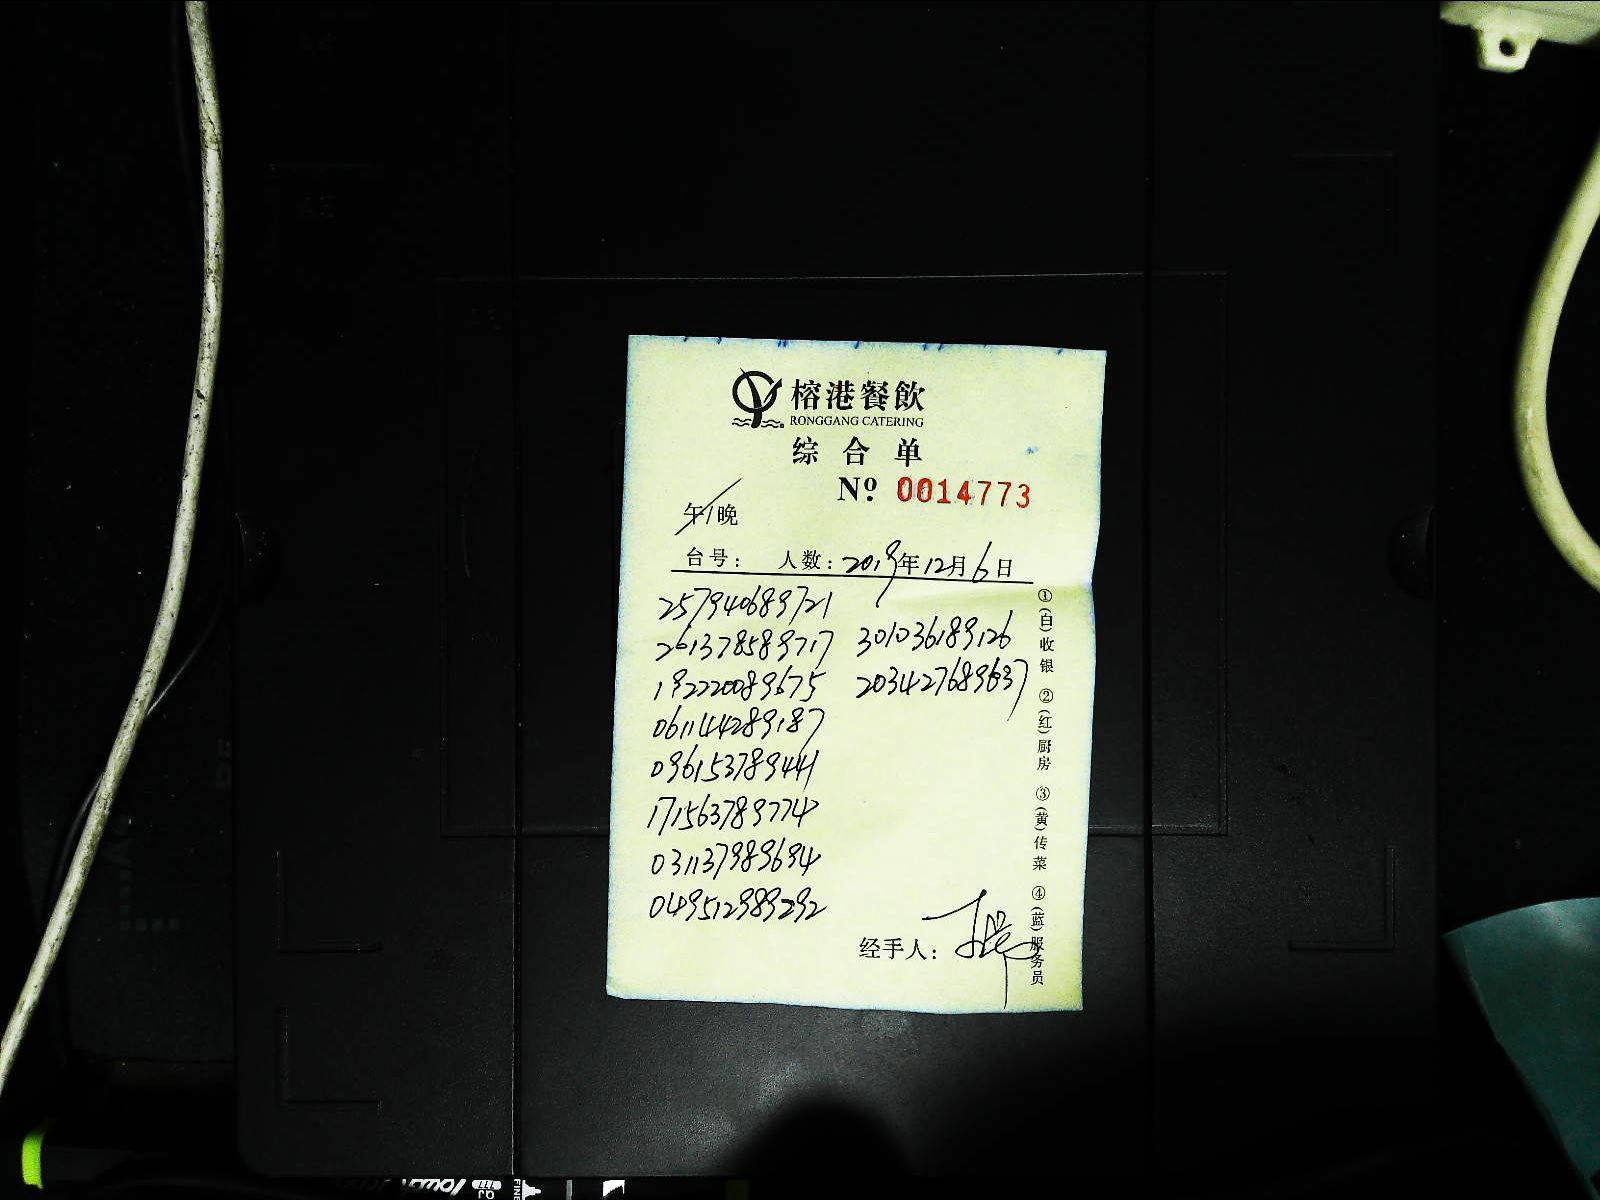 榕港餐飲
RONGGANG CATERING
综合单
Nº 0014773
午/晚
台号: 人数: 2019年12月6日
257940689721
261378589717 301036189126
192220089675 203427689637
061144289187
096153789441
171563789774
031137989694
049512989292
经手人:
①(白)收银 ②(红)厨房 ③(黄)传菜 ④(蓝)服务员